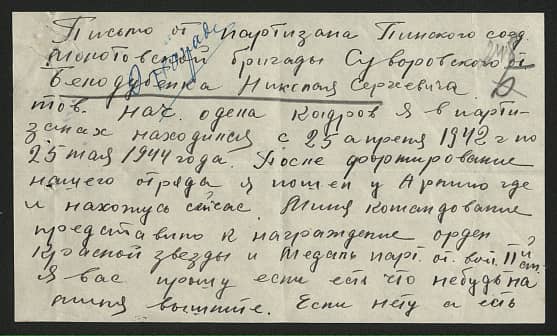 Письмо от партизана Пинского соед.
Молотовской бригады Суворовского от
Белодубенка Николая Сергеевича
тов. нач. одела Кадров я в парти-
занах находился с 25 апреля 1942 г по
25 мая 1944 года. После формирование
нашего отряда я пошел у Армию где
и нахожусь сейчас. Миня командование
представило к награждение орден
Красной звезды и Медаль парт. от. вой. II й ст.
Я вас прошу если есть что небудь на
миня вышлите. Если нету а есть